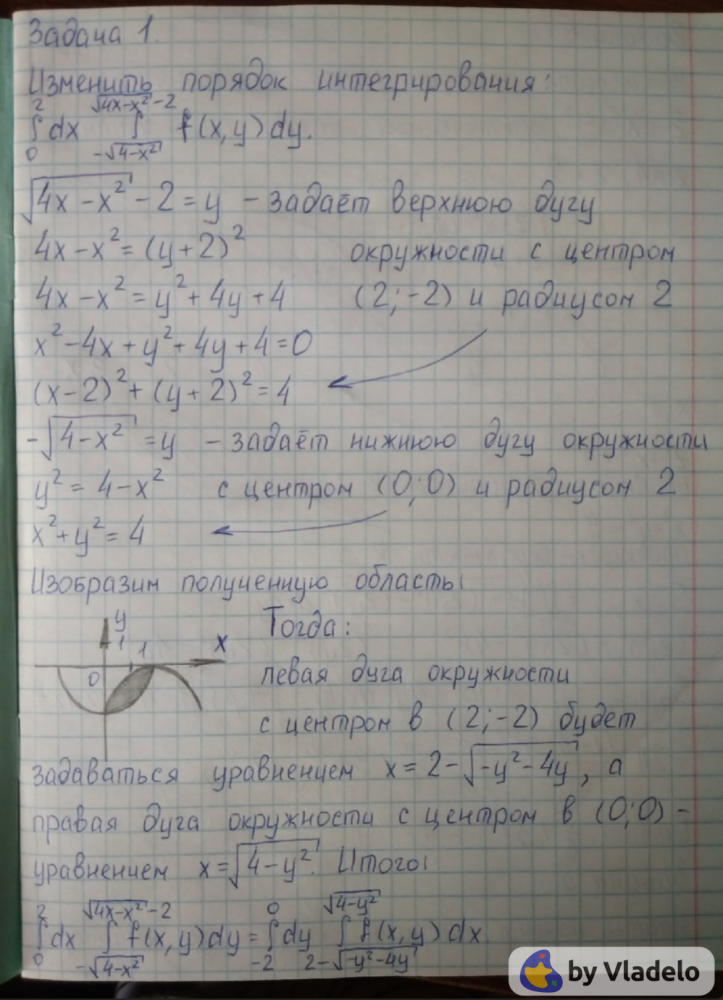 Задача 1.
Изменить порядок интегрирования:
∫₀² dx ∫_{-√(4-x²)}^{√(4x-x²)-2} f(x,y)dy.
√(4x-x²) - 2 = y - задаёт верхнюю дугу
4x-x² = (y+2)² окружности с центром
4x-x² = y²+4y+4 (2;-2) и радиусом 2
x²-4x+y²+4y+4=0
(x-2)²+(y+2)²=4
-√(4-x²) = y - задаёт нижнюю дугу окружности
y² = 4-x² с центром (0;0) и радиусом 2
x²+y²=4
Изобразим полученную область:
y
1
x
0
1
Тогда:
левая дуга окружности
с центром в (2;-2) будет
задаваться уравнением x = 2-√(-y²-4y), а
правая дуга окружности с центром в (0;0) -
уравнением x=√(4-y²). Итого:
∫₀² dx ∫_{-√(4-x²)}^{√(4x-x²)-2} f(x,y)dy = ∫_{-2}^{0} dy ∫_{2-√(-y²-4y)}^{√(4-y²)} f(x,y)dx.
by Vladelo